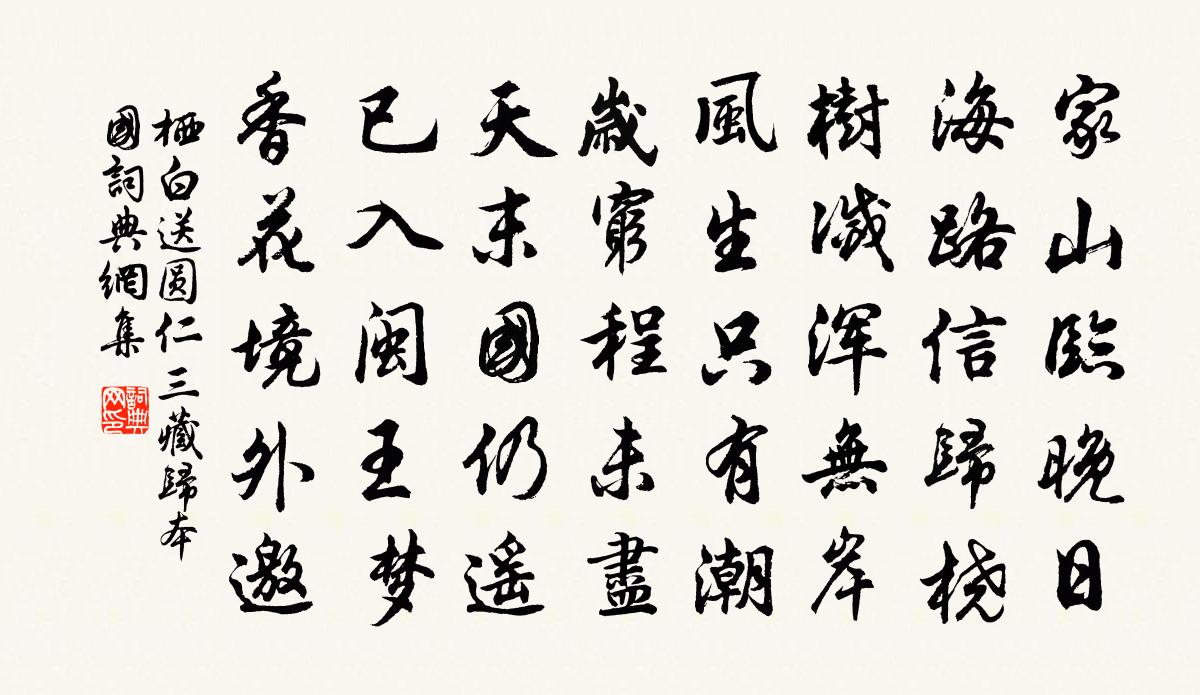 家山臨晚日
海路信歸桡
樹滅浑無岸
風生只有潮
歲窮程未盡
天末國仍遥
已入闽王梦
香花境外邀
栖白送圆仁三藏歸本
國詞典網集
詞典
网印